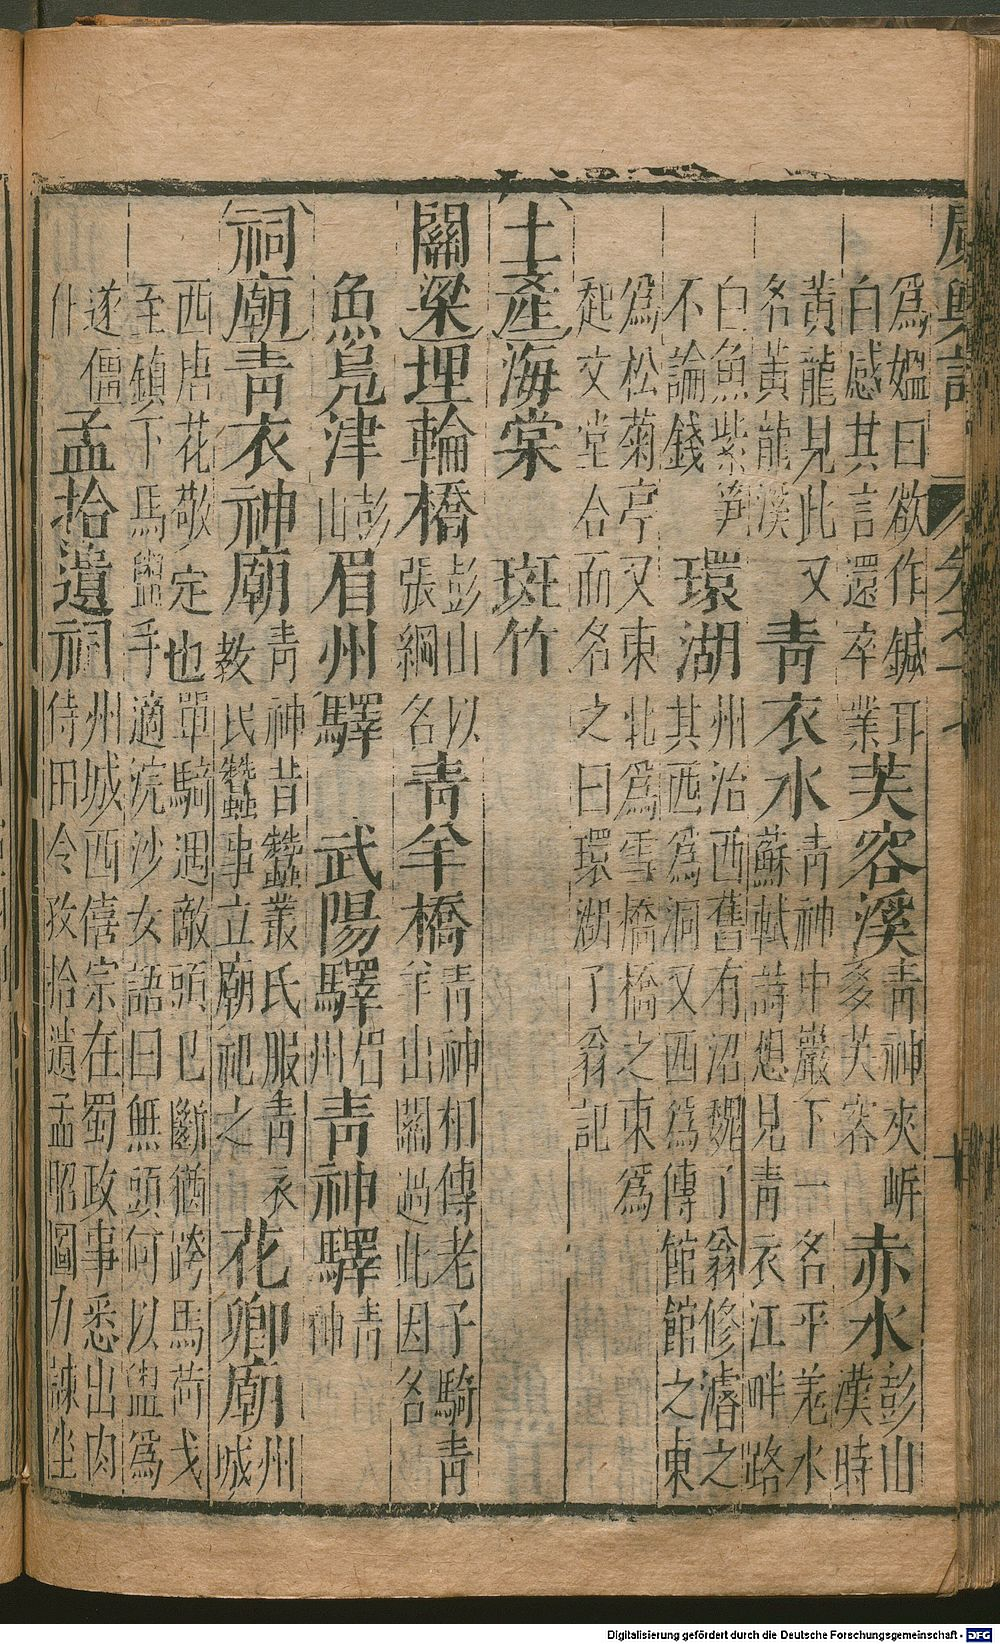 廣輿記 卷之十七
為媼曰欲作鍼耳白感其言還卒業芙蓉溪青神夾岸多芙蓉赤水彭山漢時
黃龍見此又名黃龍溪青衣水青神中巖下一名平羌水蘇軾詩想見青衣江畔路
白魚紫筍不論錢環湖州治西舊有沼魏了翁修濬之其西為洞又西為傳館館之東
為松菊亭又東北為雪橋橋之東為起文堂合而名之曰環湖了翁記
土產海棠 斑竹
關梁埋輪橋彭山以張綱名青羊橋青神相傳老子騎青羊出關過此因名
魚鳧津彭山眉州驛 武陽驛眉州青神驛青神
祠廟青衣神廟青神昔蠶叢氏服青衣教民蠶事立廟祀之花卿廟州城
西唐花敬定也單騎遇敵頭已斷猶跨馬荷戈至鎮下馬盥手適浣沙女語曰無頭何以盥為
遂僵仆孟拾遺祠州城西僖宗在蜀政事悉出內侍田令孜拾遺孟昭圖力諫坐
Digitalisierung gefördert durch die Deutsche Forschungsgemeinschaft - DFG